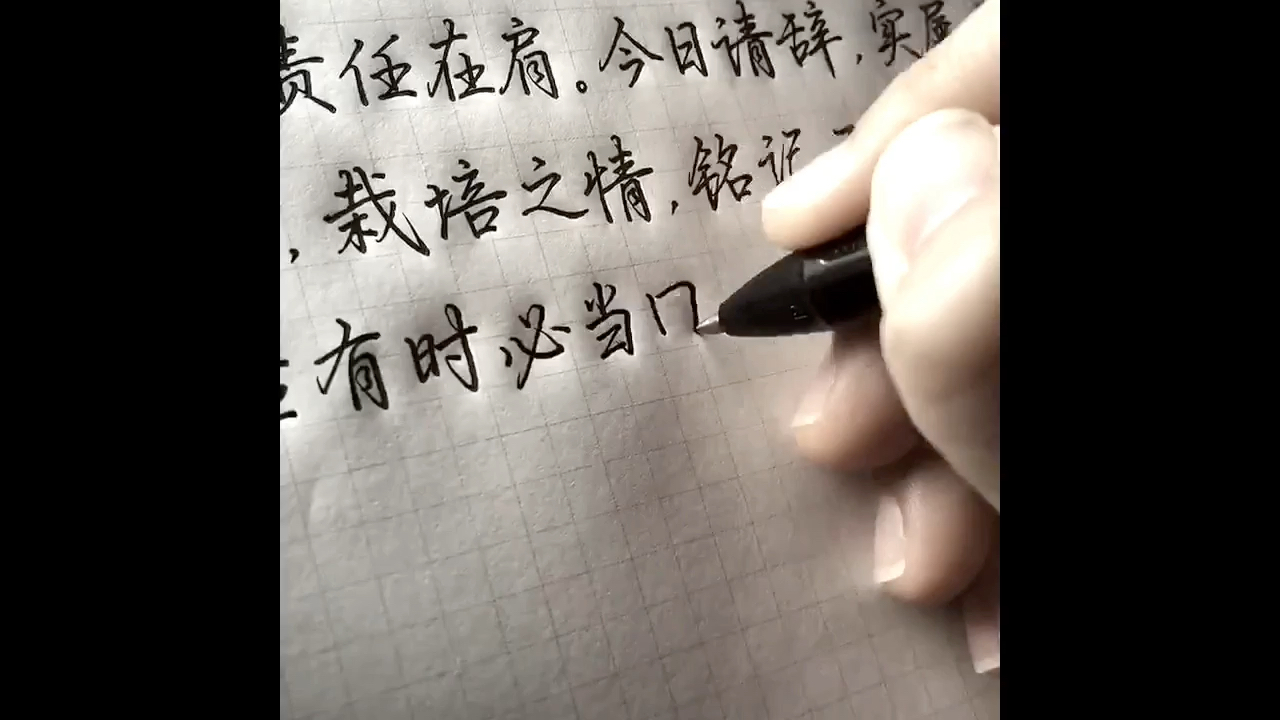 责任在肩。今日请辞,实属
,栽培之情,铭记
有时,必当